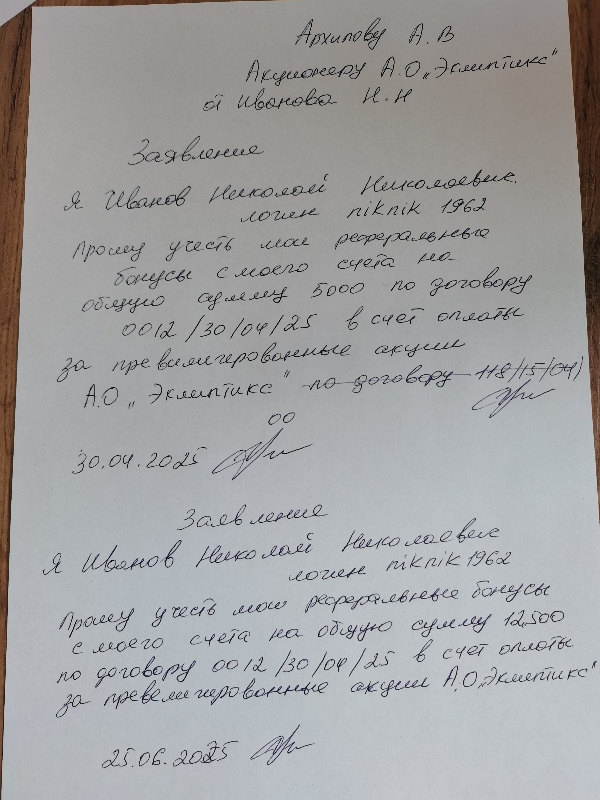 Архипову А.В
Акционеру А.О „Эклиптика"
от Иванова Н.Н
Заявление
Я Иванов Николай Николаевич.
логин niknik 1962
Прошу учесть мои реферальные
бонусы с моего счета на
общую сумму 5000 по договору
0012/30/04/25 в счет оплаты
за превилигированные акции
А.О „Эклиптика" по договору 118/15/04/
00
30.04.2025
Заявление
Я Иванов Николай Николаевич
логин niknik1962
Прошу учесть мои реферальные бонусы
с моего счета на общую сумму 12,500
по договору 0012/30/04/25 в счет оплаты
за превелигированные акции А.О„Эклиптика"
25.06.2025